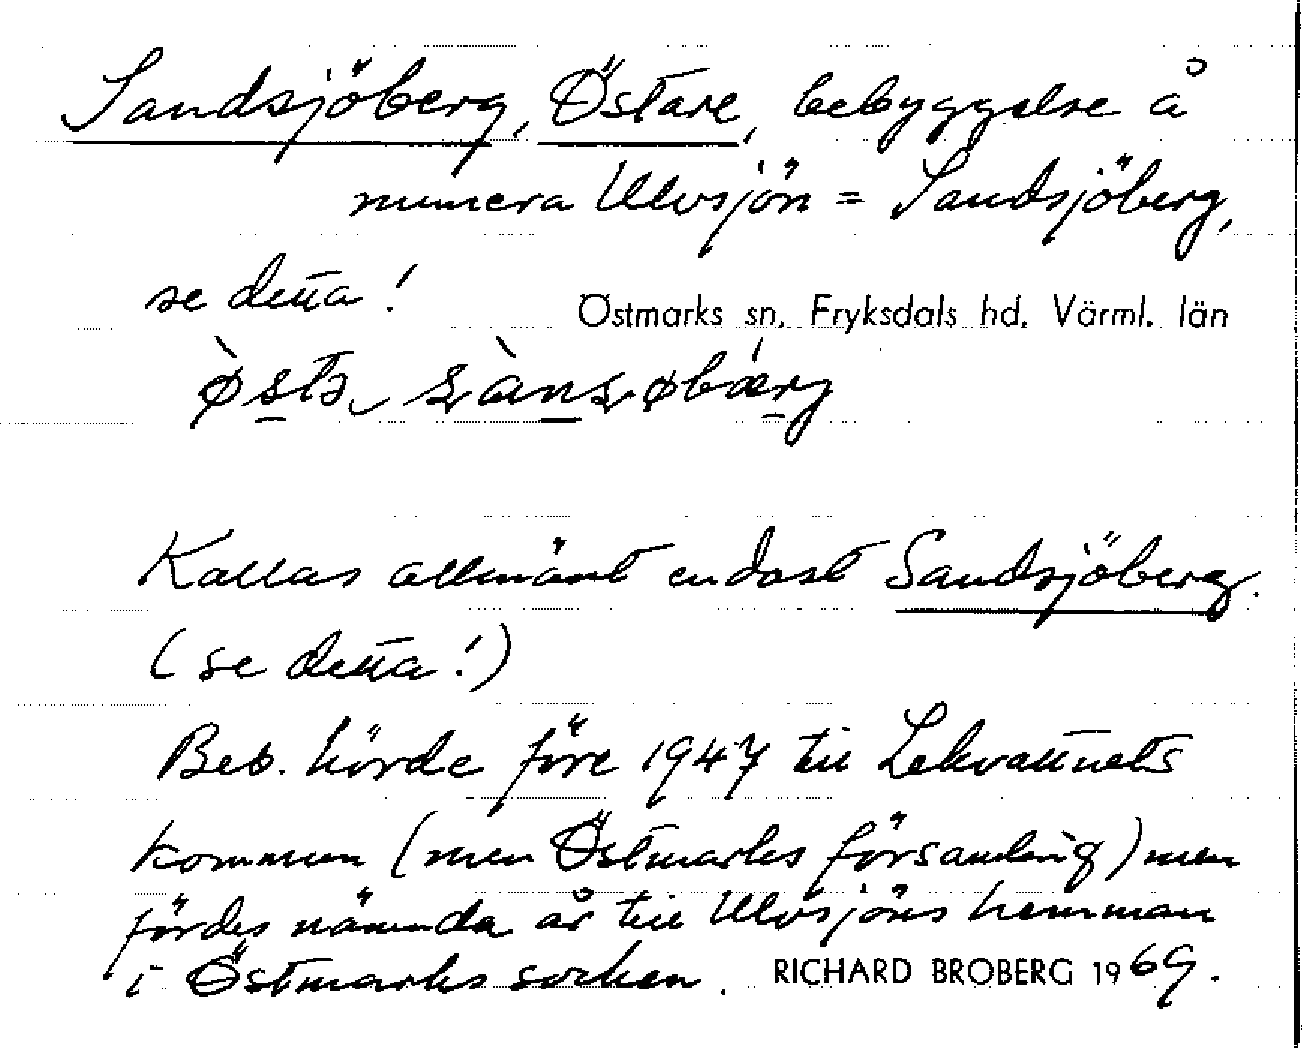 Sandsjöberg, Östare, bebyggelse å
numera Ulvsjön = Sandsjöberg,
se detta!
Östmarks sn. Fryksdals hd. Värml. län
Kallas allmänt endast Sandsjöberg.
(se detta!)
Beb. hörde före 1947 till Lekvattnets
kommun (men Östmarks församling) men
fördes nämnda år till Ulvsjöns hemman
i Östmarks socken. RICHARD BROBERG 1969.